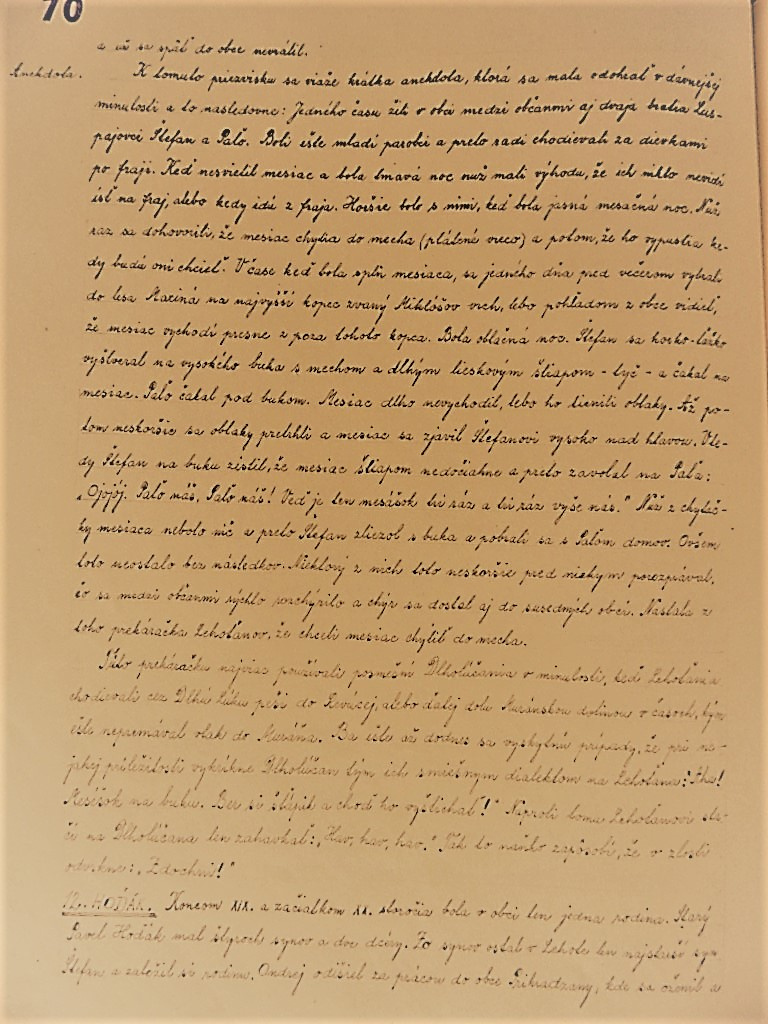 70
a už sa späť do obce nevrátil.
Anekdota. K tomuto priezvisku sa viaže krátka anekdota, ktorá sa mala odohrať v dávnejšej
minulosti a to nasledovne: Jedného času žili v obci medzi občanmi aj dvaja bratia Lus-
pajovci Štefan a Paľo. Boli ešte mladí parobci a preto radi chodievali za dievkami
po fraji. Keď nesvietil mesiac a bola tmavá noc nuž mali výhodu, že ich nikto nevidí
ísť na fraj, alebo kedy idú z fraja. Horšie bolo s nimi, keď bola jasná mesačná noc. Nuž
raz sa dohovorili, že mesiac chytia do mecha (plátené vreco) a potom, že ho vypustia ke-
dy budú oni chcieť. V čase keď bola spln mesiaca, sa jedného dňa pred večerom vybrali
do lesa Mariná na najvyšší kopec zvaný Miklóšov vrch, lebo pohľadom z obce videli,
že mesiac vychodí presne z poza tohoto kopca. Bola oblačná noc. Štefan sa horko-ťažko
vyštveral na vysokého buka s mechom a dlhým lieskovým štiapom - tyč - a čakal na
mesiac. Paľo čakal pod bukom. Mesiac dlho nevychodil, lebo ho tienili oblaky. Až po-
tom neskoršie sa oblaky pretrhli a mesiac sa zjavil Štefanovi vysoko nad hlavou. Vte-
dy Štefan na buku zistil, že mesiac štiapom nedočiahne a preto zavolal na Paľa:
„Ojojój. Paľo náš, Paľo náš! Veď je ten mesášok tri ráz a tri ráz vyše nás." Nuž z chytač-
ky mesiaca nebolo nič a preto Štefan zliezol s buka a pobrali sa s Paľom domov. Ovšem
toto neostalo bez následkov. Niektorý z nich toto neskoršie pred niekym porozprával,
čo sa medzi občanmi rýchlo rozchýrilo a chýr sa dostal aj do susedných obcí. Nastala z
toho prekáračka Lehoťanov, že chceli mesiac chytiť do mecha.
Túto prekáračku najviac používali posmešní Dlholúčania v minulosti, keď Lehoťania
chodievali cez Dlhú Lúku peši do Revúcej, alebo ďalej dolu Muránskou dolinou v časoch, kým
ešte nepremával vlak do Muráňa. Ba ešte až dodnes sa vyskytnú prípady, že pri ne-
jakej príležitosti vykríkne Dlholúčan tým ich smiešnym dialektom na Lehoťana: Aha!
Mesášok na buku. Ber si štiapik a choď ho vyštichať!" Naproti tomu Lehoťanovi sta-
čí na Dlholúčana len zahavkať: „Hav, hav, hav." Tak to naňho zapôsobí, že v zlosti
odvrkne: „Zdochni!"
12. HODÁK. Koncom XIX. a začiatkom XX. storočia bola v obci len jedna rodina. Starý
Pavel Hodák mal štyroch synov a dve dcéry. Zo synov ostal v Lehote len najstarší syn
Štefan a založil si rodinu. Ondrej odišiel za prácou do obce Prihradzany, kde sa oženil a